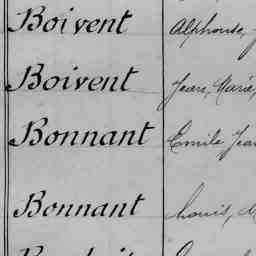 Boivent Alphonse,
Boivent Jean, Marie,
Bonnant Emile Jea
Bonnant Louis,